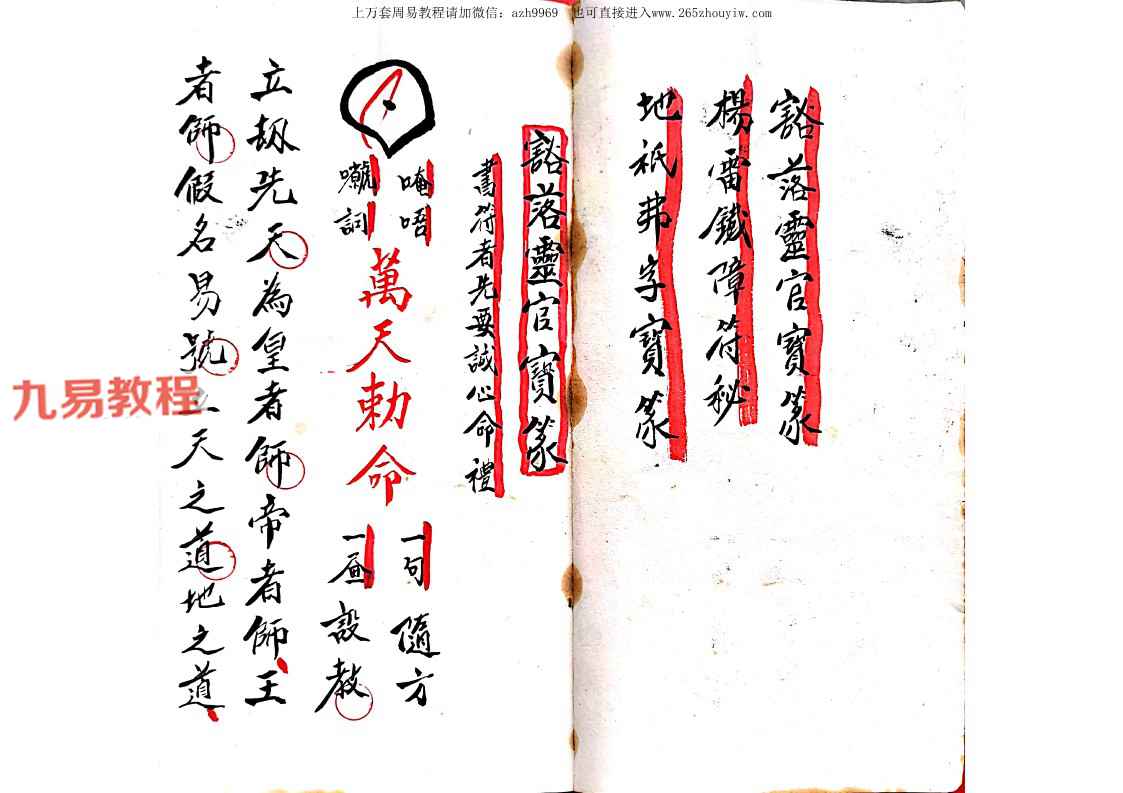 上万套周易教程请加微信：azh9969 也可直接进入www.265zhouyiw.com
豁落靈官寶篆
楊雷鐵障符秘
地祇弗字寶篆
豁落靈官寶篆
書符者先要誠心命禮
唵唔
嚱詞
萬天勅命
一句隨方
一画設教
立劫先天為皇者師帝者師王
者師假名易號天之道地之道
九易教程